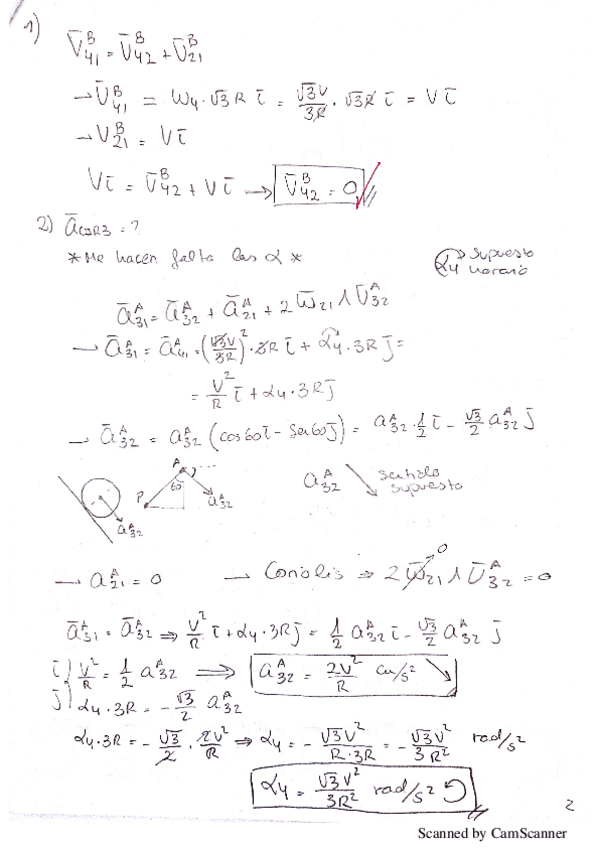 1)
V̄₄₁ᴮ = Ū₄₂ᴮ + Ū₂₁ᴮ
→ Ū₄₁ᴮ = ω₄·√3 R ī = √3V/3R · √3R ī = V ī
→ V₂₁ᴮ = Vī
Vī = Ū₄₂ᴮ + Vī → Ū₄₂ᴮ = 0
2) ācor3 = ?
* Me hacen falta las α *
α₄ supuesto horario
ā₃₁ᴬ = ā₃₂ᴬ + ā₂₁ᴬ + 2 ω̄₂₁ ∧ Ū₃₂ᴬ
→ ā₃₁ᴬ = ā₄₁ᴬ = (√3V/3R)² · 3R ī + α₄·3R j̄ =
= V²/R ī + α₄·3R j̄
→ ā₃₂ᴬ = a₃₂ᴬ (cos60 ī - sen60 j̄) = a₃₂ᴬ · 1/2 ī - √3/2 a₃₂ᴬ j̄
a₃₂ᴬ
P A 60 a₃₂ᴬ
a₃₂ᴬ ↘ sentido supuesto
→ a₂₁ᴬ = 0 → Coriolis ⇒ 2 ω̄₂₁ 0 ∧ Ū₃₂ᴬ = 0
ā₃₁ᴬ = ā₃₂ᴬ ⇒ V²/R ī + α₄·3R j̄ = 1/2 a₃₂ᴬ ī - √3/2 a₃₂ᴬ j̄
ī) V²/R = 1/2 a₃₂ᴬ ⇒ a₃₂ᴬ = 2V²/R cm/s² ↘
j̄) α₄·3R = - √3/2 a₃₂ᴬ
α₄·3R = - √3/2 · 2V²/R ⇒ α₄ = - √3V²/R·3R = - √3V²/3R² rad/s²
α₄ = √3V²/3R² rad/s² ↺
2
Scanned by CamScanner